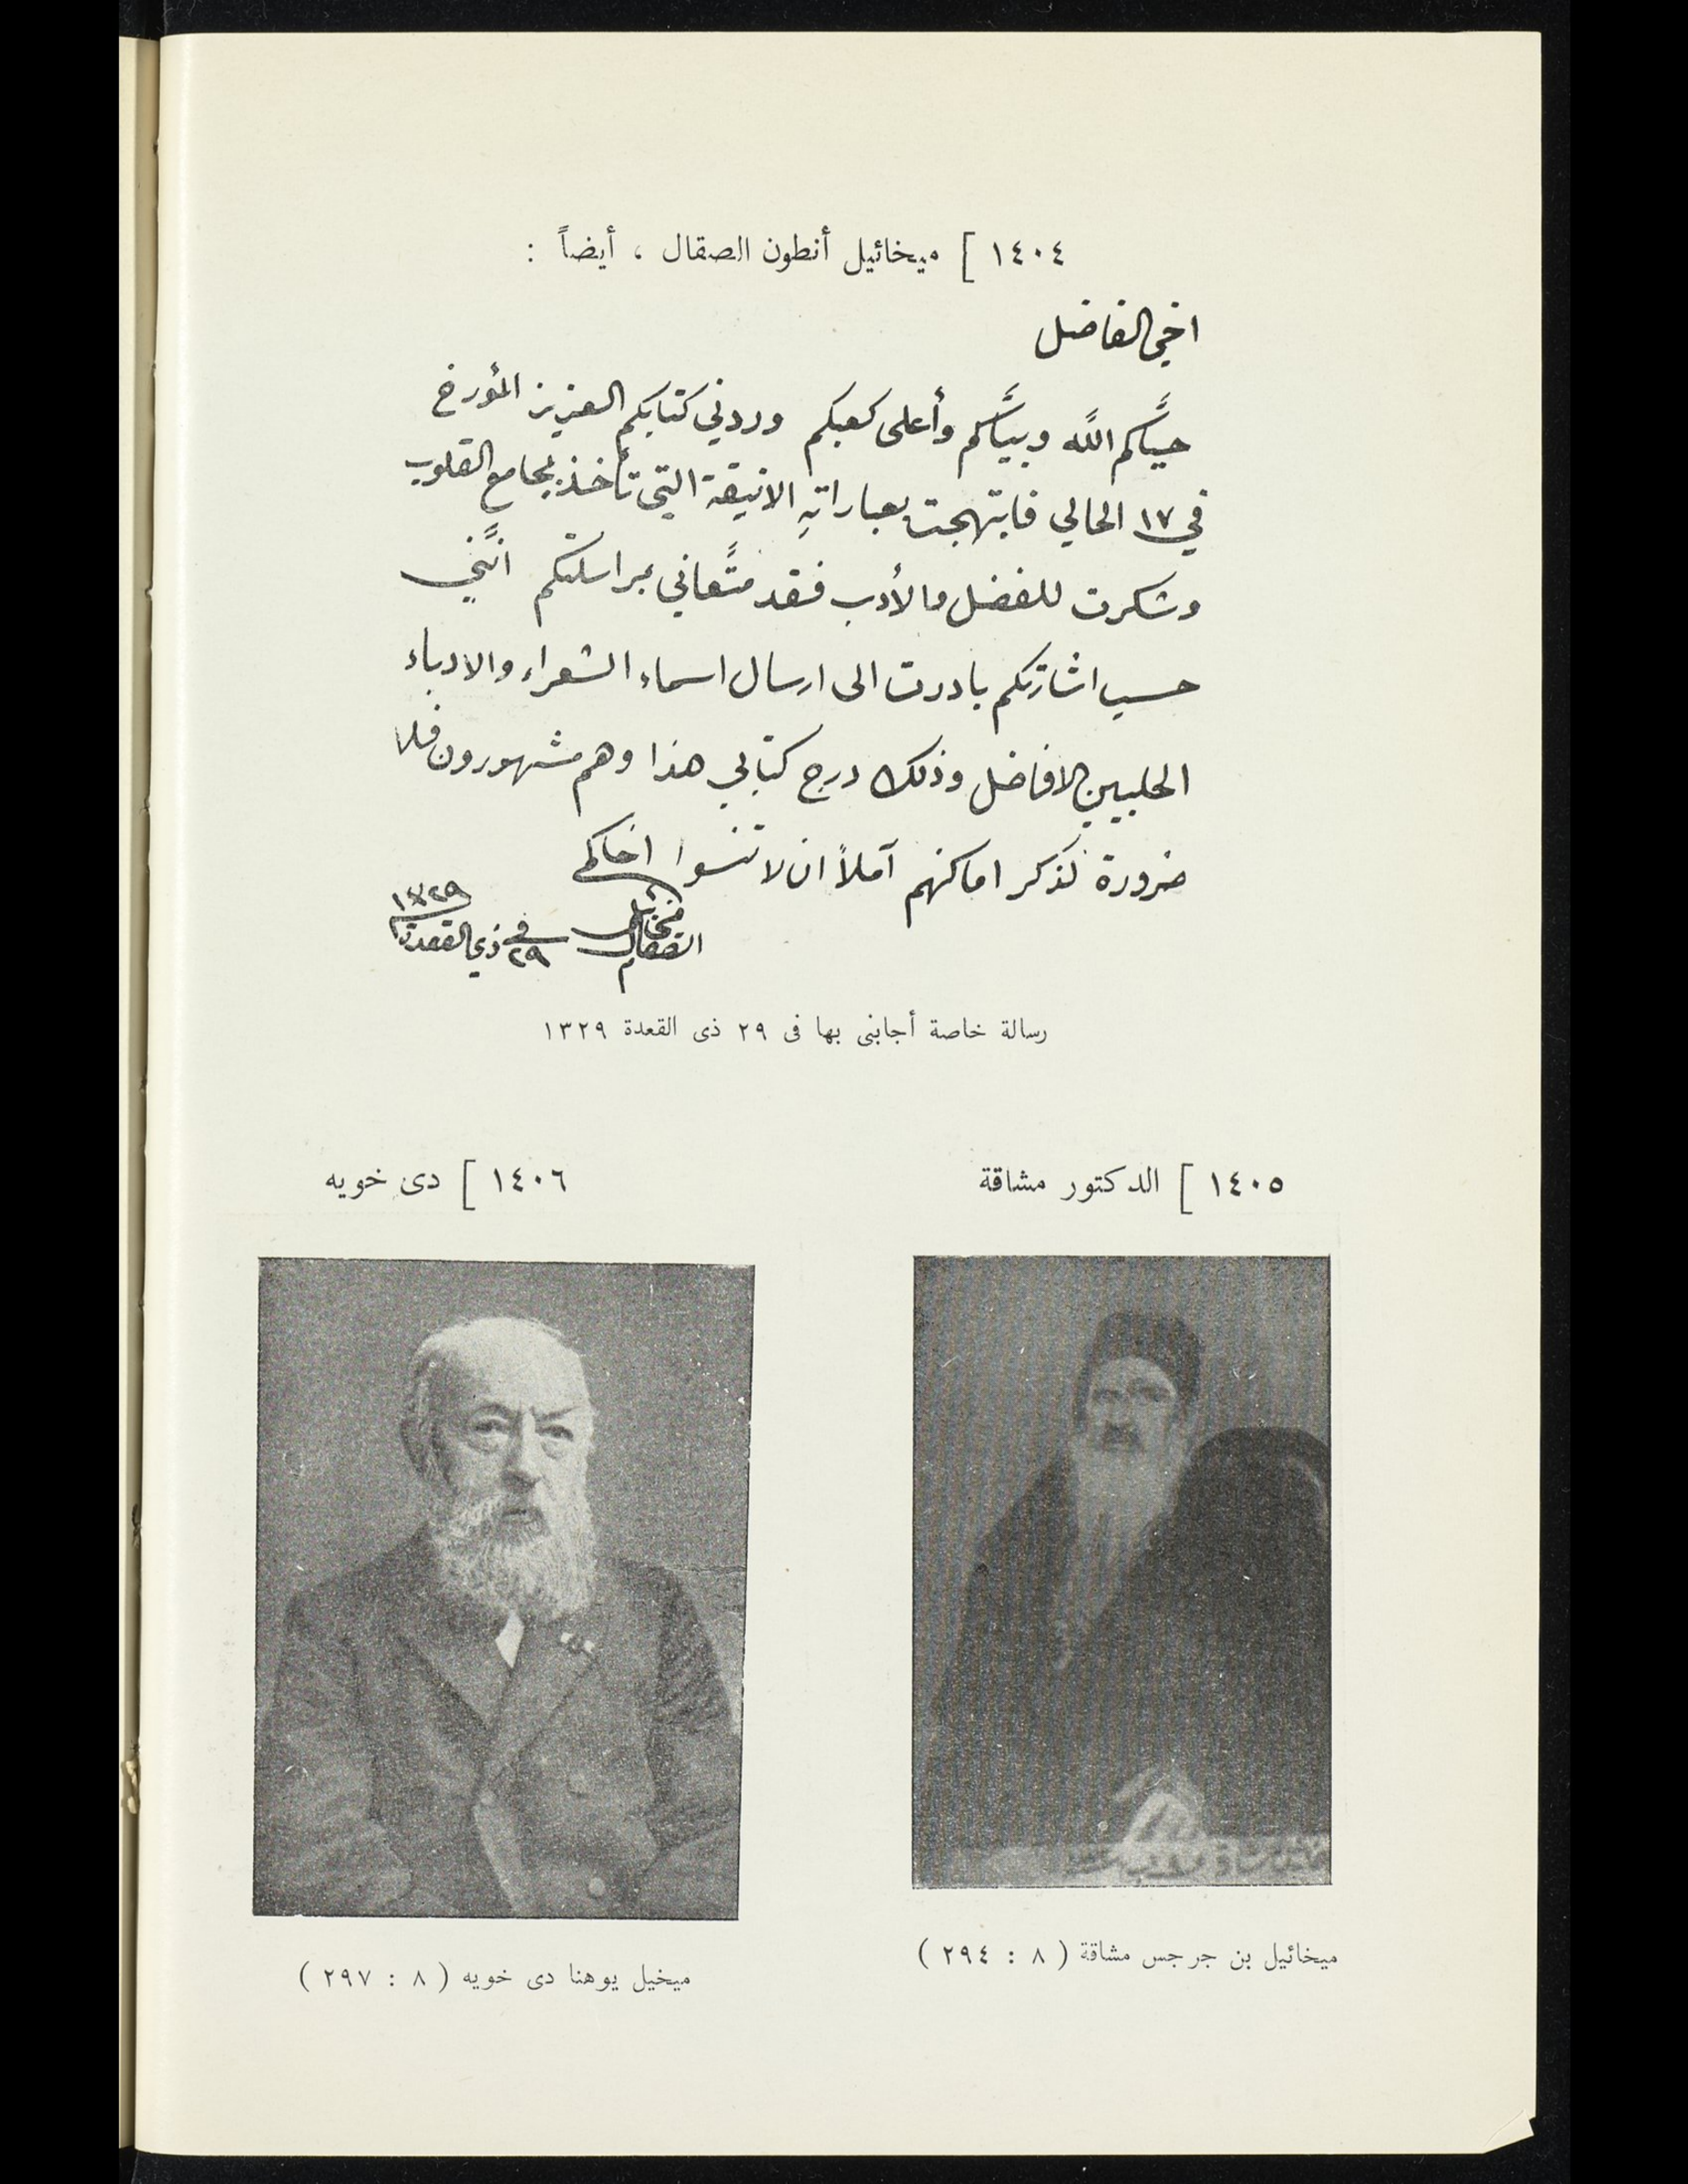 ١٤٠٤ ] ميخائيل أنطون الصقال ، أيضاً :
اخي الفاضل
حيَّاكم اللّه وبيَّاكم وأعلى كعبكم وردني كتابكم العزيز المؤرخ
في ١٧ الحالي فابتهجت بعباراتهِ الانيقة التي تأخذ بمجامع القلوب
وشكرت للفضل والأدب فقد متَّعاني بمراسلتكم انَّني
حسب اشارتكم بادرت الى ارسال اسماء الشعراء والادباء
الحلبيين الافاضل وذلك درج كتابي هذا وهم مشهورون فلا
ضرورة لذكر اماكنهم آملاً ان لا تنسوا اخاكم
ميخائيل
الصقال
في ٢٩ ذي القعدة ١٣٢٩
رسالة خاصة أجابنى بها فى ٢٩ ذى القعدة ١٣٢٩
١٤٠٥ ] الدكتور مشاقة
١٤٠٦ ] دى خويه
ميخائيل بن جرجس مشاقة ( ٨ : ٢٩٤ )
ميخيل يوهنا دى خويه ( ٨ : ٢٩٧ )